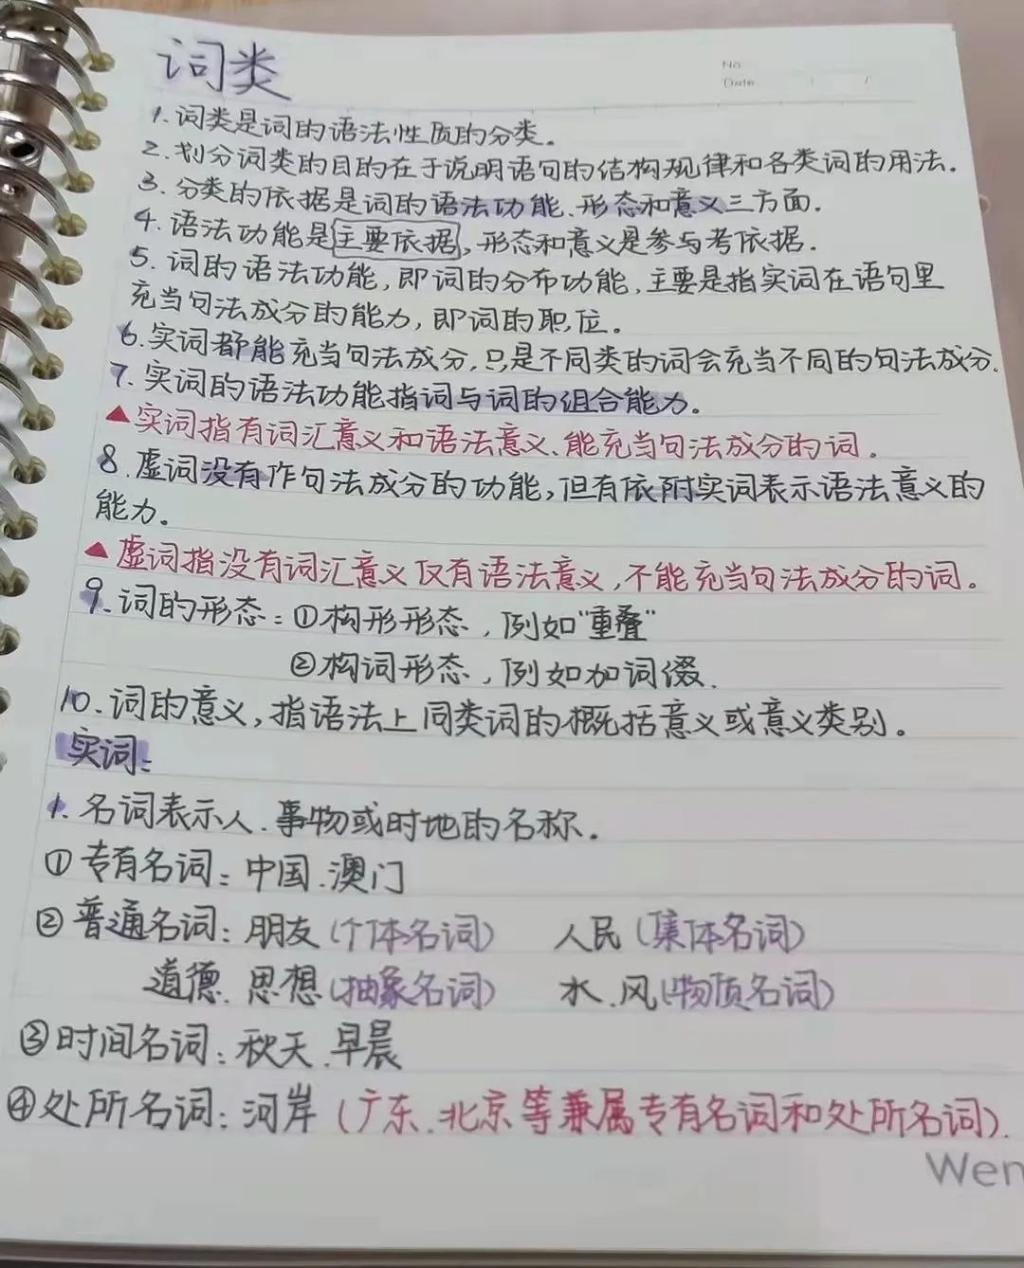 词类
No
Date / /
1.词类是词的语法性质的分类。
2.划分词类的目的在于说明语句的结构规律和各类词的用法.
3.分类的依据是词的语法功能、形态和意义三方面.
4.语法功能是主要依据,形态和意义是参与考依据.
5.词的语法功能,即词的分布功能,主要是指实词在语句里
充当句法成分的能力,即词的职位。
6.实词都能充当句法成分,只是不同类的词会充当不同的句法成分.
7.实词的语法功能指词与词的组合能力。
▲实词指有词汇意义和语法意义、能充当句法成分的词。
8.虚词没有作句法成分的功能,但有依附实词表示语法意义的
能力。
▲虚词指没有词汇意义仅有语法意义,不能充当句法成分的词。
9.词的形态:①构形形态,例如“重叠”
②构词形态,例如加词缀.
10.词的意义,指语法上同类词的概括意义或意义类别。
实词:
1.名词表示人、事物或时地的名称.
①专有名词:中国、澳门
②普通名词:朋友(个体名词) 人民(集体名词)
道德、思想(抽象名词) 水、风(物质名词)
③时间名词:秋天、早晨
④处所名词:河岸(广东、北京等兼属专有名词和处所名词).
Wen